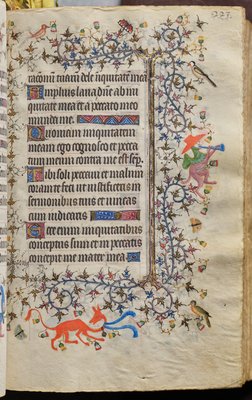 tacionū tuarū dele iniquitatē meā
Amplius laua me ab ini
quitate mea et a peccato meo
munda me.
Quoniam iniquitatem
meam ego cognosco et pecca
tum meum contra me est semp̄
Tibi soli peccaui et malum
coram te feci ut iustificeris in
sermonibus tuis et uincas
cum iudicaris
Ecce enim iniquitatibus
conceptus sum et in peccatis
concepit me mater mea